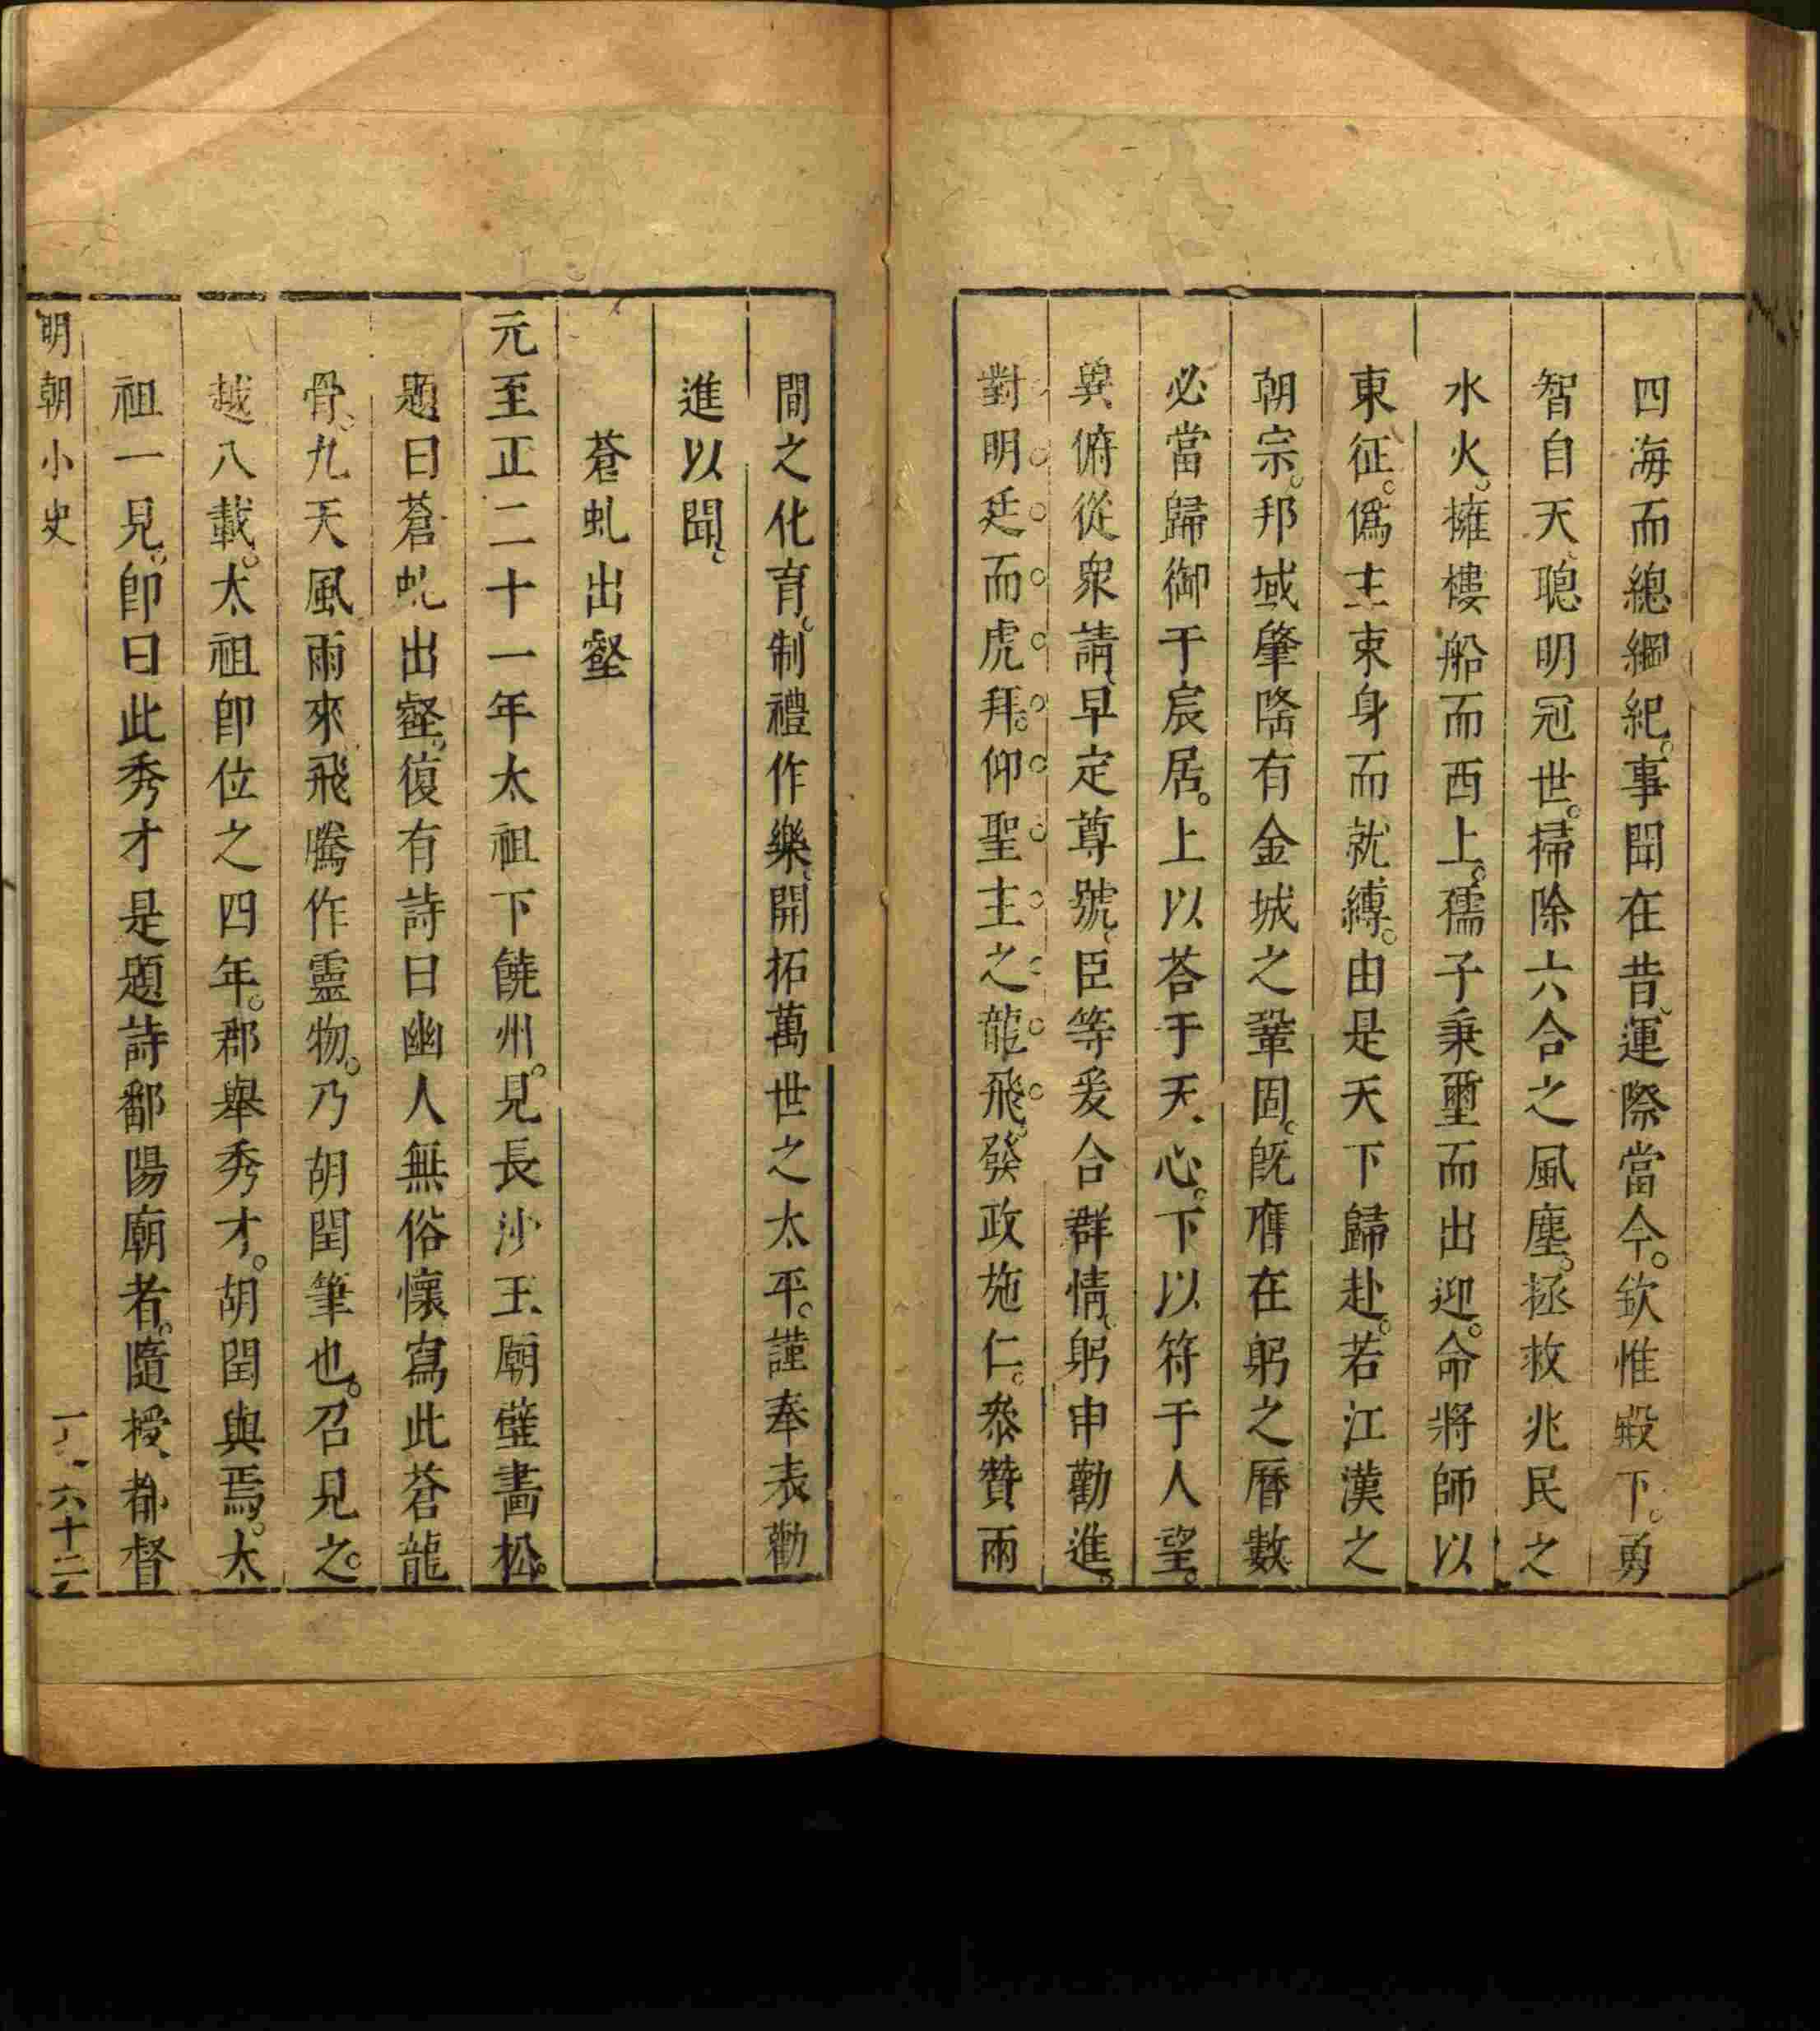 四海而總綱紀。事聞在昔、運際當今。欽惟殿下。勇
智自天、聰明冠世。掃除六合之風塵。拯救兆民之
水火。擁樓船而西上。孺子秉璽而出迎。命將師以
東征。僞主束身而就縛。由是天下歸赴。若江漢之
朝宗。邦域肇隆有金城之鞏固。旣膺在躬之曆數
必當歸御于宸居。上以荅于天心。下以符于人望。
異俯從衆請、早定尊號、臣等爰合群情、躬申勸進。
對明廷而虎拜。仰聖主之龍飛。發政施仁。叅贊兩
間之化育。制禮作樂、開拓萬世之太平。謹奉表勸
進以聞、
蒼虬出壑
元至正二十一年太祖下饒州。見長沙王廟壁畵松。
題曰蒼虬出壑。復有詩曰幽人無俗懷寫此蒼龍
骨。九天風雨來飛騰作靈物。乃胡閏筆也。召見之。
越八載。太祖卽位之四年。郡舉秀才。胡閏與焉。太
祖一見。卽曰此秀才是題詩鄱陽廟者。隨授都督
明朝小史
六十二